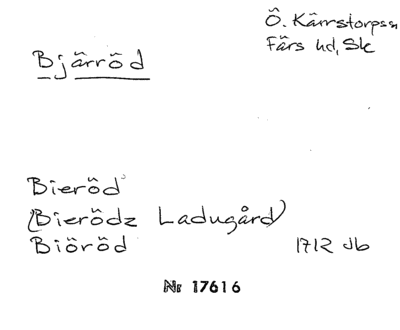 Ö. Kärrstorps sn
Färs hd, Sk
Bjärröd
Bieröd
(Bierödz Ladugård)
Biöröd 1712 Jb
Nr 17616